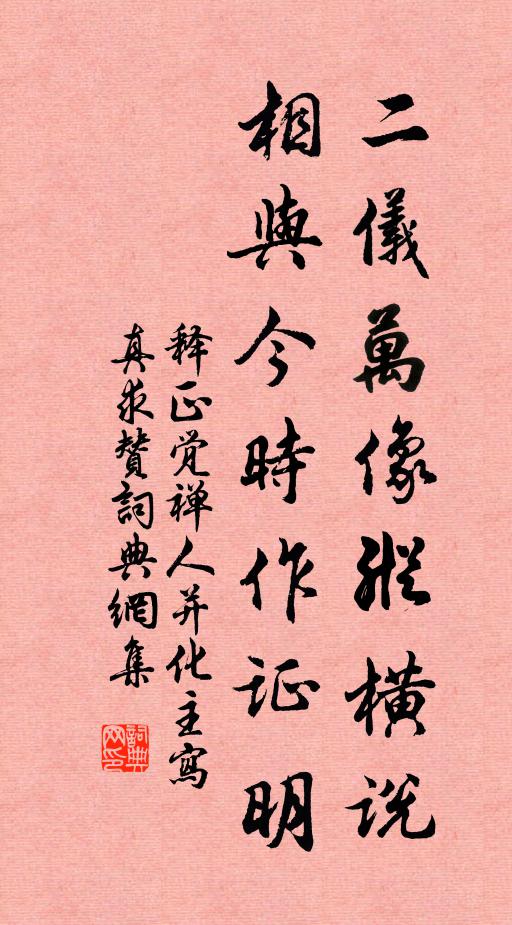 二儀萬像縱橫説
相與今時作证明
释正觉禅人并化主寫
真求贊詞典網集
詞典网印